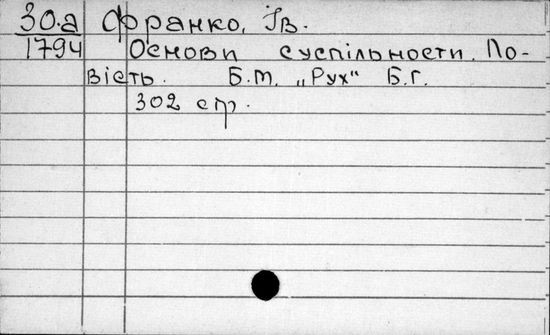 30.а Франко, Ів.
1794 Основи суспільности. По-
вість. Б.м. „Рух“ Б.г.
302 стр.